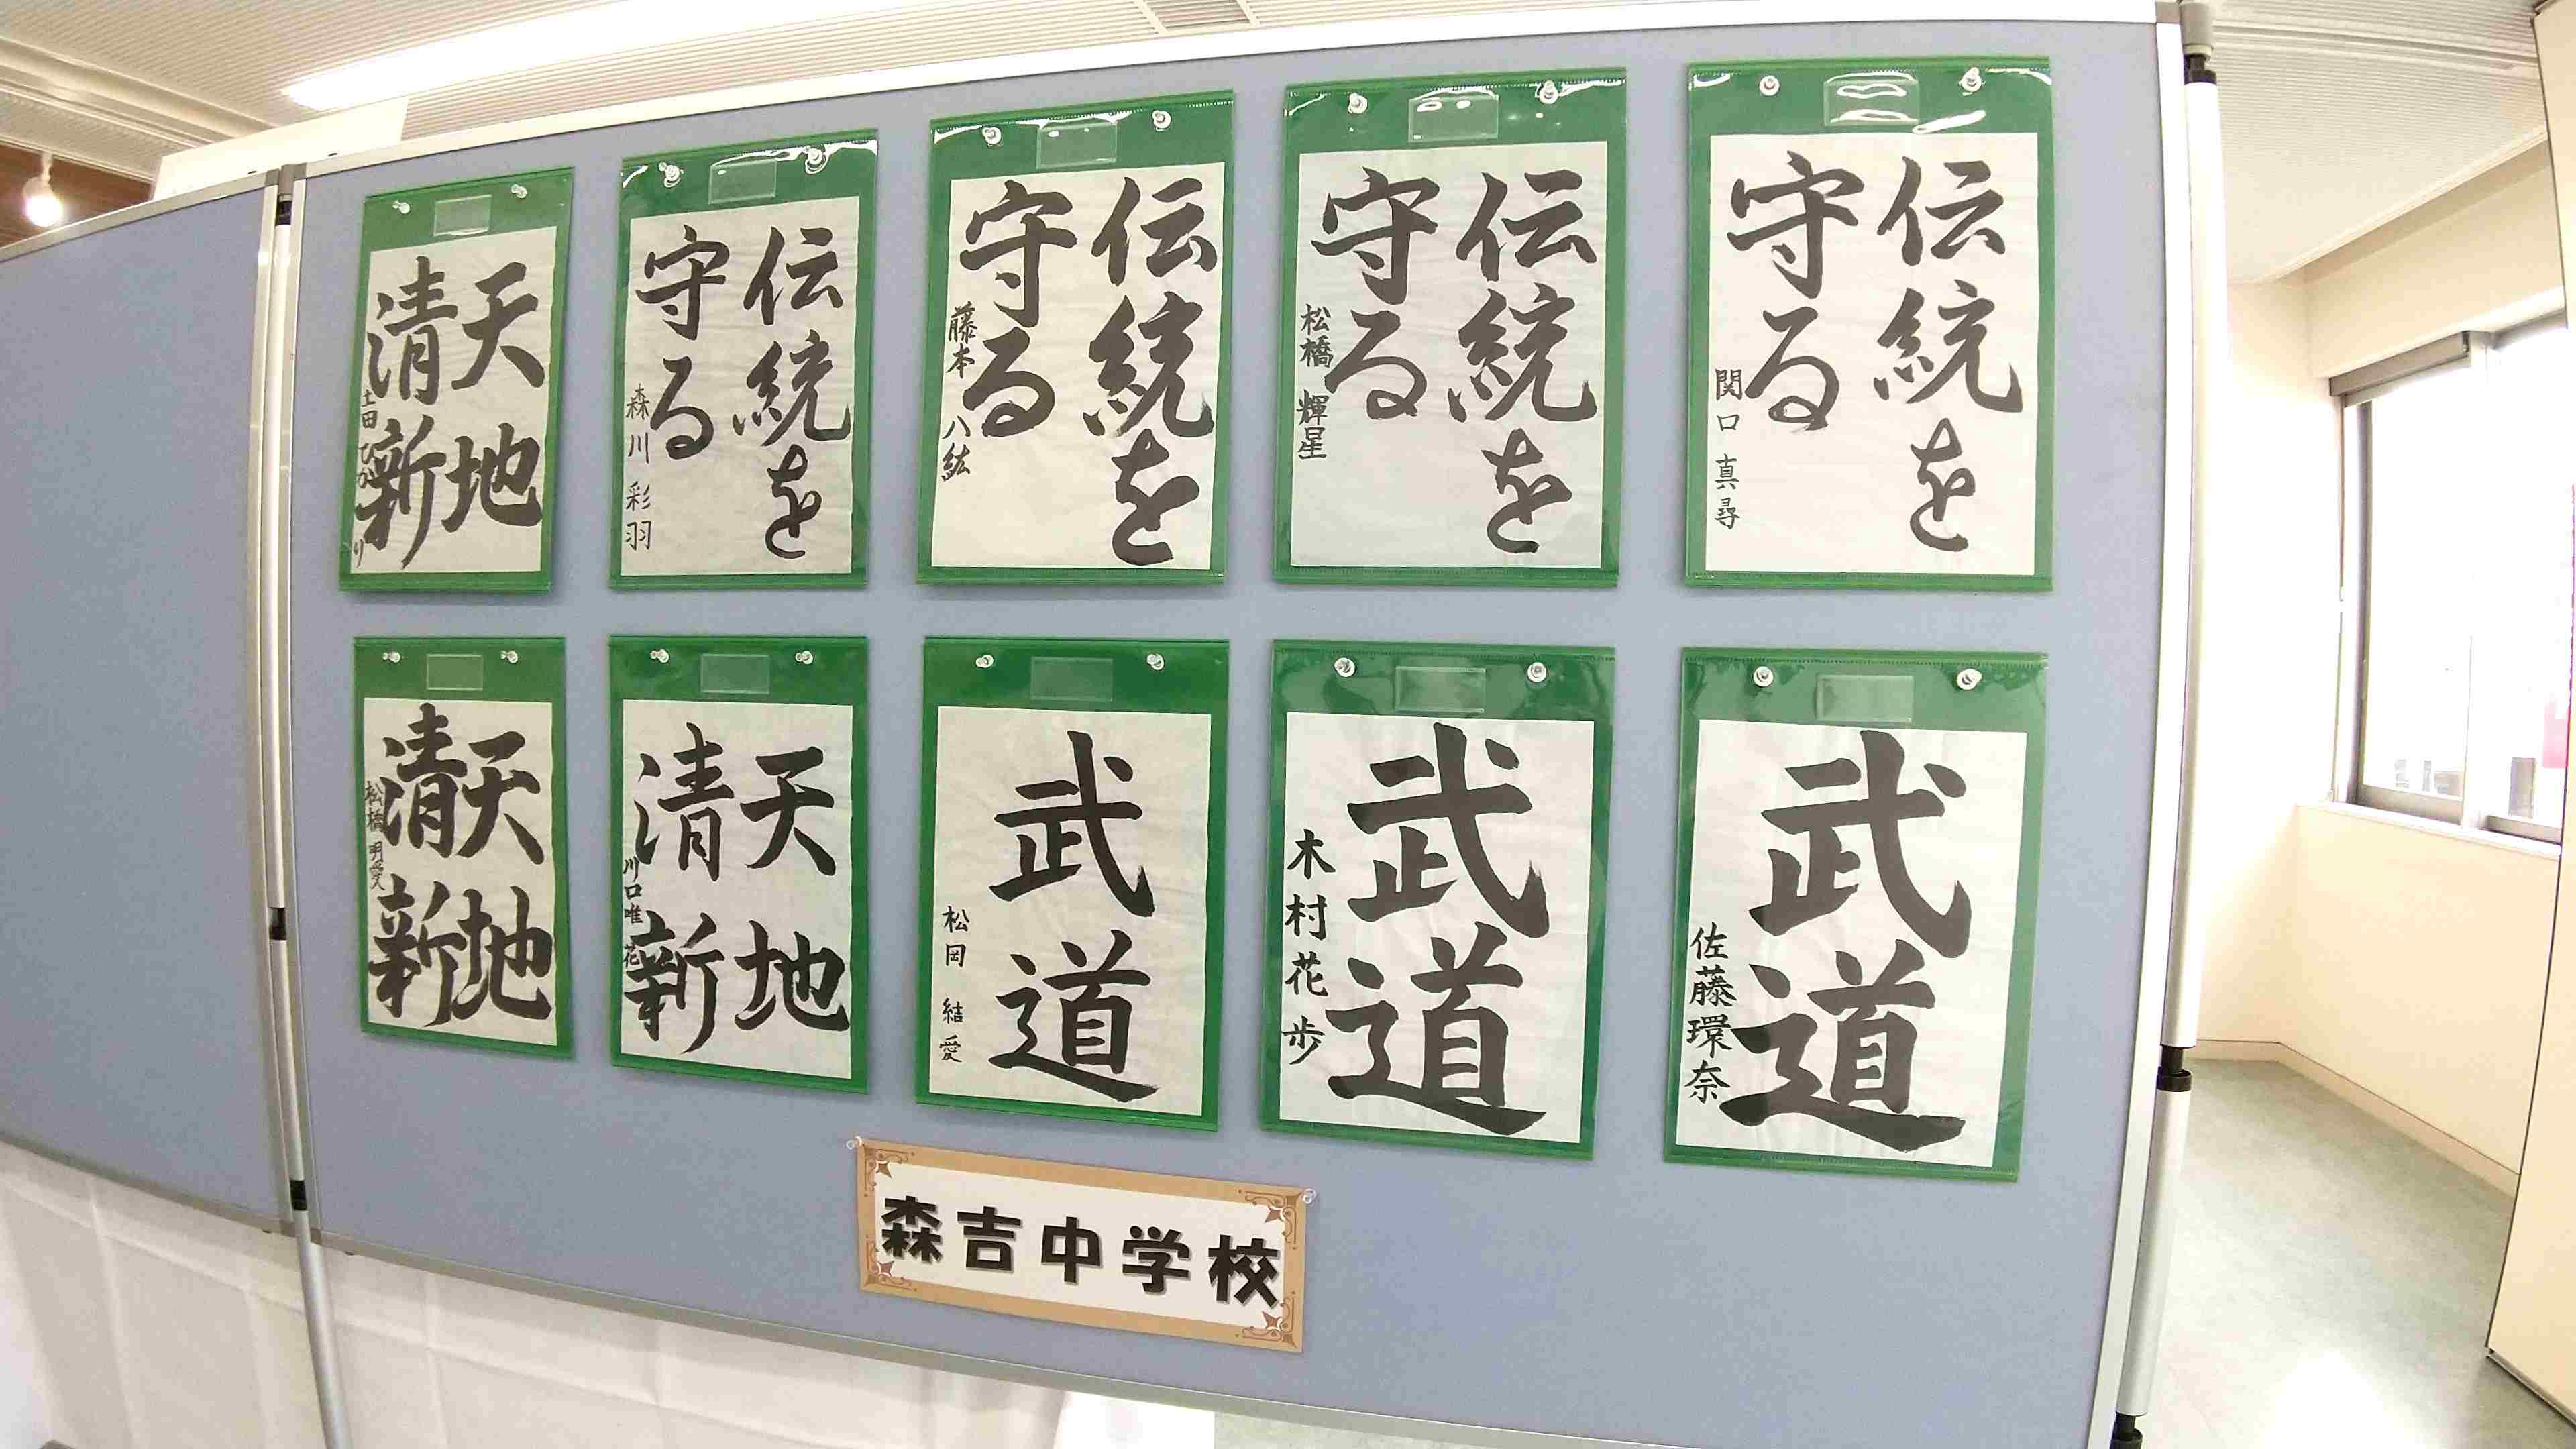 伝統を
守る
関口真尋
伝統を
守る
松橋輝星
伝統を
守る
藤本八紘
伝統を
守る
森川彩羽
天地
清新
土田ひかり
武道
佐藤環奈
武道
木村花歩
武道
松岡結愛
天地
清新
川口唯花
天地
清新
松橋明愛
森吉中学校